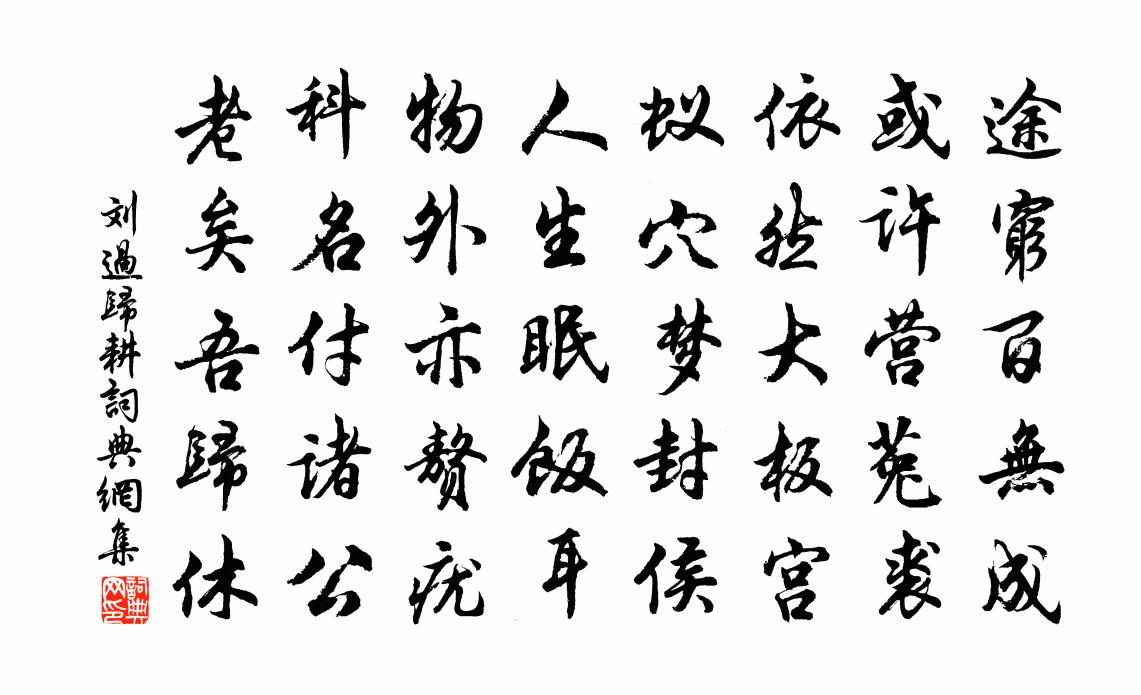 途窮百無成
或许营菟裘
依然大板宫
蚁穴梦封侯
人生眠飯耳
物外亦赘疣
科名付诸公
老矣吾歸休
刘過歸耕詞典網集
詞典网印